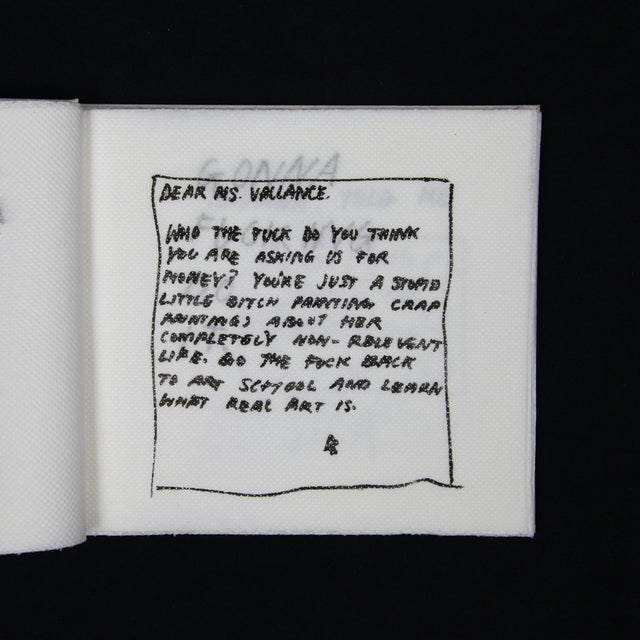 DEAR MS. VALLANCE.
WHO THE FUCK DO YOU THINK
YOU ARE ASKING US FOR
MONEY? YOU'RE JUST A STUPID
LITTLE BITCH PAINTING CRAP
PAINTINGS ABOUT HER
COMPLETELY NON-RELEVENT
LIFE. GO THE FUCK BACK
TO ART SCHOOL AND LEARN
WHAT REAL ART IS.
GONNA
FUCKING